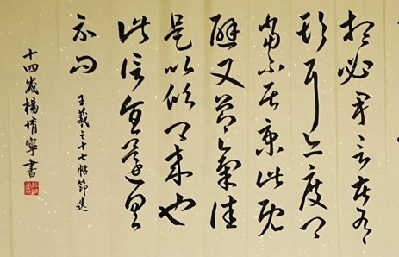 想必果言告有
期耳亦度卿
當不居京此既
避又節氣佳
是以欣卿來也
此信旨還具
示問
王羲之十七帖節選
十四歲楊婧寧書